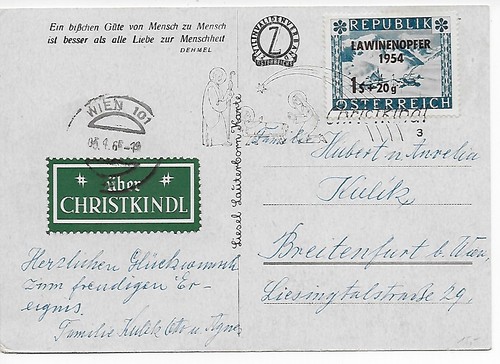 Ein bißchen Güte von Mensch zu Mensch
ist besser als alle Liebe zur Menschheit
DEHMEL
ZIVILINVALIDENVERBAND
Z
ÖSTERREICHS
REPUBLIK
LAWINENOPFER
1954
1S+20g
ÖSTERREICH
Christkindl
3
WIEN 101
über
CHRISTKINDL
Liesel Lauterborn Karte
Familie Hubert u. Aurelia
Kulik
Breitenfurt b. Wien
Liesingtalstraße 29,
Herzlichen Glückwunsch
zum freudigen Er-
eignis.
Familie Kulik Otto u. Agnes